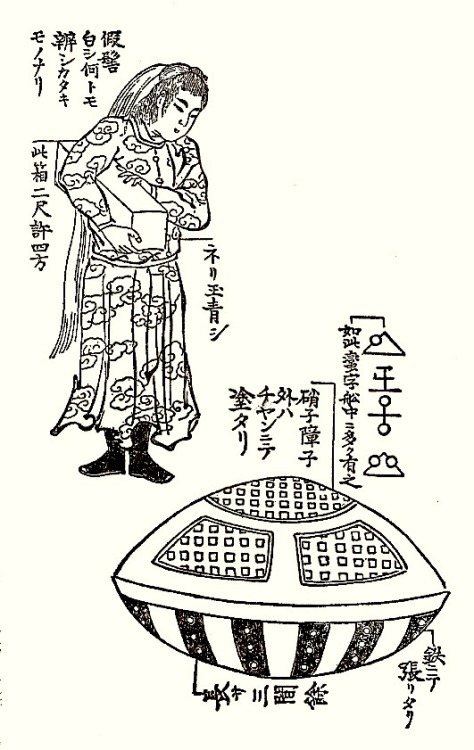 假髻
白シ何トモ
辨シカタキ
モノナリ
此箱二尺許四方
ネリ玉青シ
如此蛮字船中ニ多ク有之
硝子障子
外ハ
チヤンニテ
塗タリ
鉄ニテ
張リタリ
長サ三間餘